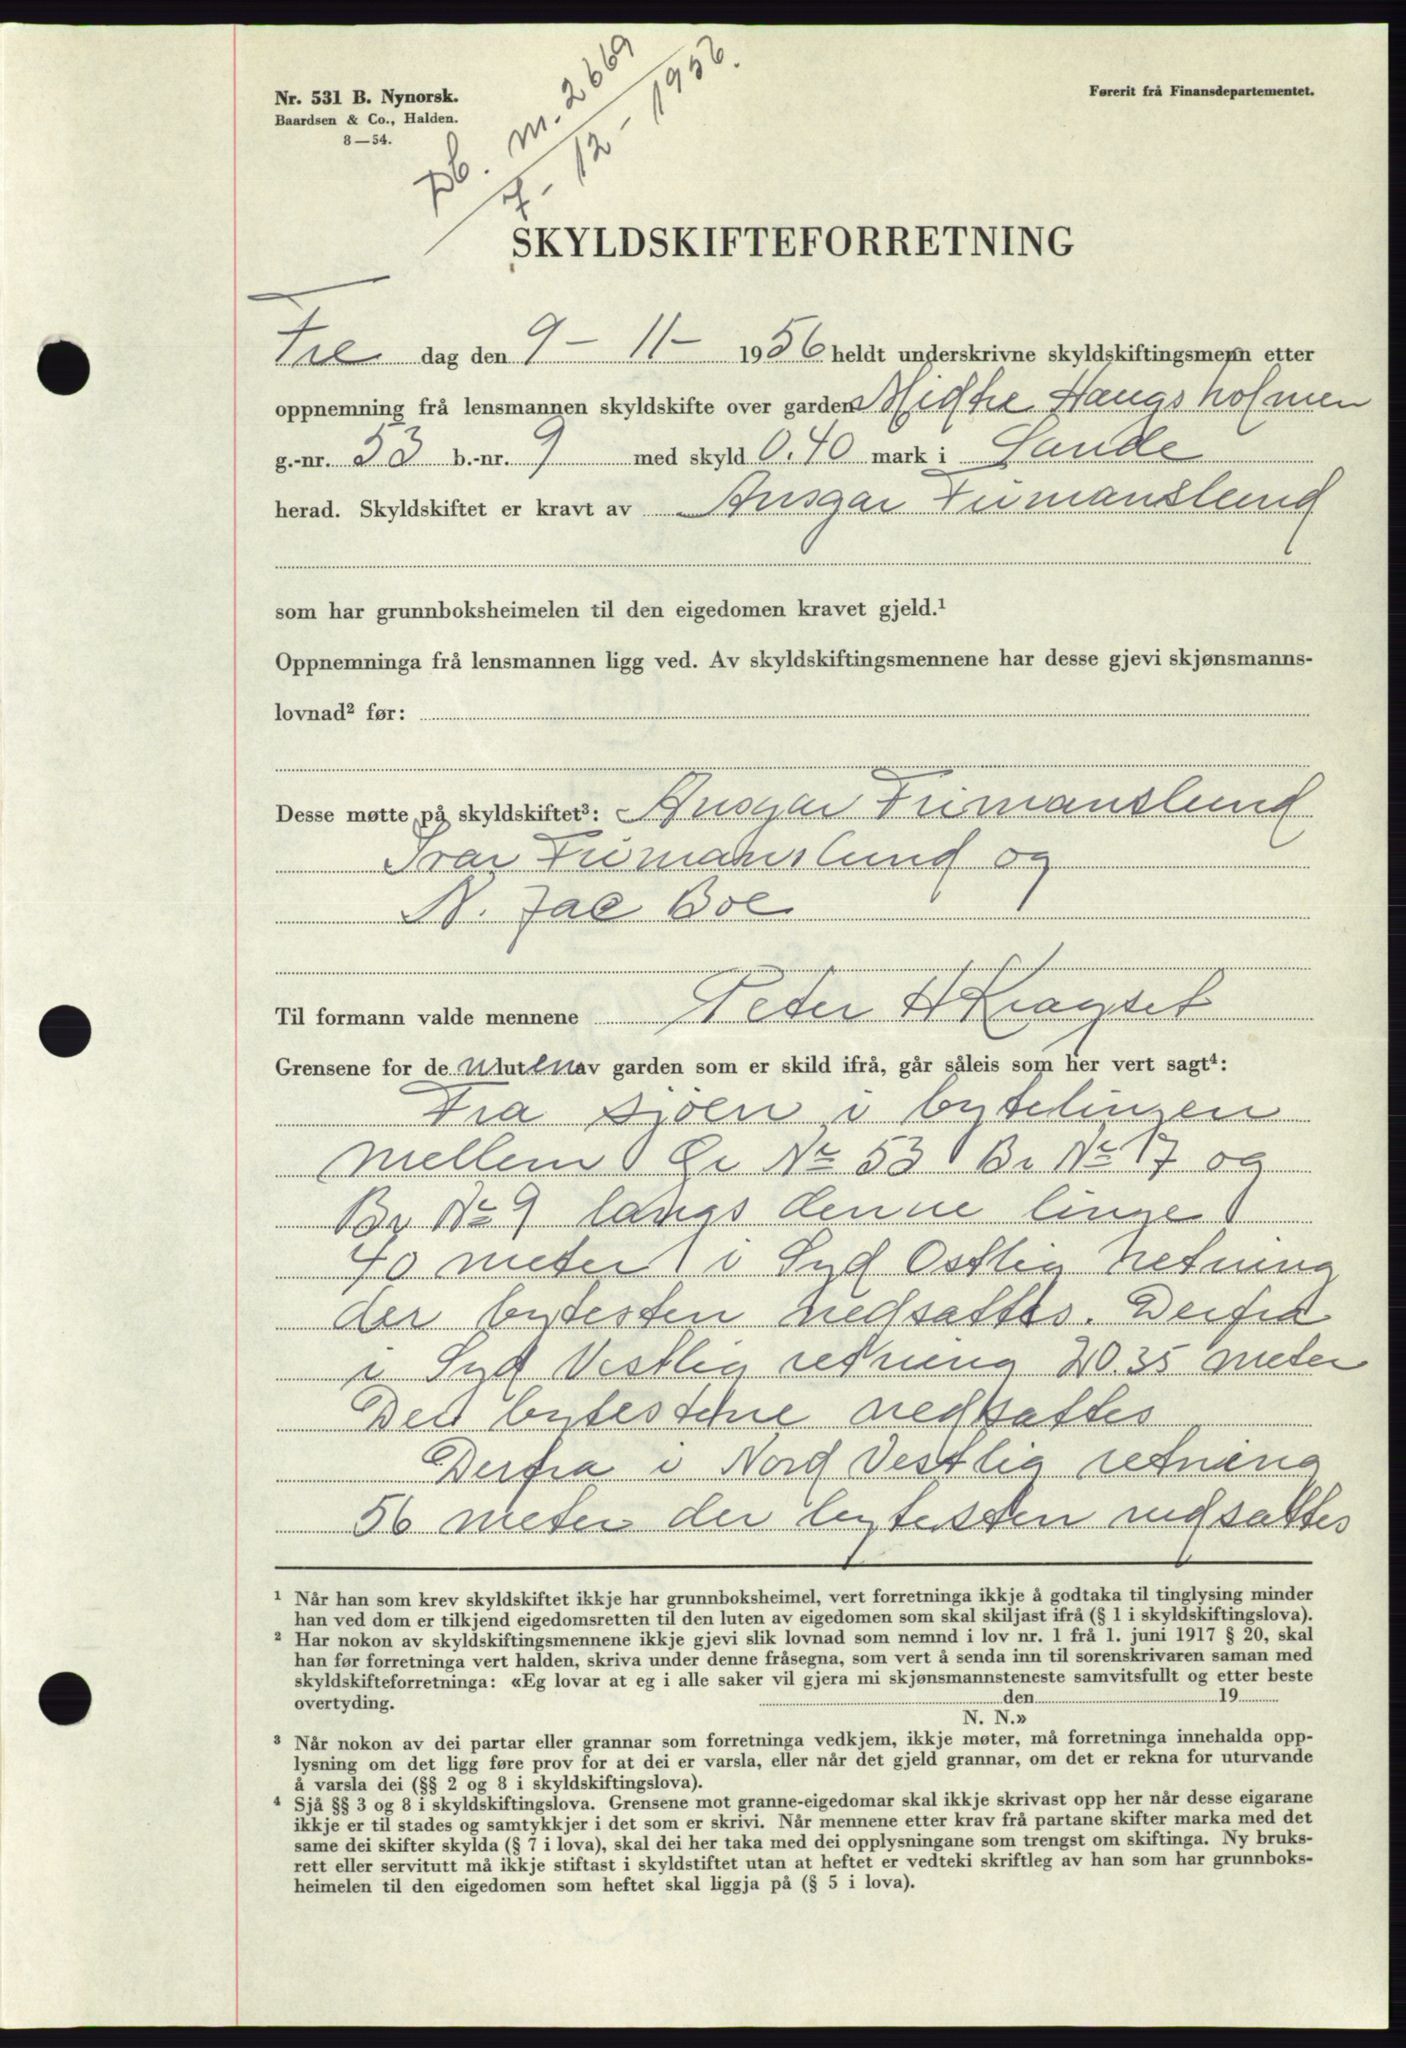 Nr. 531 B. Nynorsk.
Baardsen & Co., Halden.
8—54.
Db. m. 2669
7-12-1956.
Førerit frå Finansdepartementet.
SKYLDSKIFTEFORRETNING
Fre dag den 9 - 11 - 1956 heldt underskrivne skyldskiftingsmenn etter
oppnemning frå lensmannen skyldskifte over garden Midtre Haugsholmen
g.-nr. 53 b.-nr. 9 med skyld 0.40 mark i Sande
herad. Skyldskiftet er kravt av Ansgar Frimanslund
som har grunnboksheimelen til den eigedomen kravet gjeld.¹
Oppnemninga frå lensmannen ligg ved. Av skyldskiftingsmennene har desse gjevi skjønsmanns-
lovnad² før:
Desse møtte på skyldskiftet³: Ansgar Frimanslund
Ivar Frimanslund og
N. Jac Boe
Til formann valde mennene Peter H Kragset
Grensene for de n luten av garden som er skild ifrå, går såleis som her vert sagt⁴:
Fra sjøen i bytelinjen
mellem Gr № 53 Br № 17 og
Br № 9 langs denne linje
40 meter i Syd Ostlig retning
der bytesten nedsattes. Derfra
i Syd Vestlig retning 20.35 meter
Der bytestene nedsattes
Derfra i Nord Vestlig retning
56 meter der bytesten nedsattes
¹ Når han som krev skyldskiftet ikkje har grunnboksheimel, vert forretninga ikkje å godtaka til tinglysing minder
han ved dom er tilkjend eigedomsretten til den luten av eigedomen som skal skiljast ifrå (§ 1 i skyldskiftingslova).
² Har nokon av skyldskiftingsmennene ikkje gjevi slik lovnad som nemnd i lov nr. 1 frå 1. juni 1917 § 20, skal
han før forretninga vert halden, skriva under denne fråsegna, som vert å senda inn til sorenskrivaren saman med
skyldskifteforretninga: «Eg lovar at eg i alle saker vil gjera mi skjønsmannsteneste samvitsfullt og etter beste
overtyding. den 19
N. N.»
³ Når nokon av dei partar eller grannar som forretninga vedkjem, ikkje møter, må forretninga innehalda opp-
lysning om det ligg føre prov for at dei er varsla, eller når det gjeld grannar, om det er rekna for uturvande
å varsla dei (§§ 2 og 8 i skyldskiftingslova).
⁴ Sjå §§ 3 og 8 i skyldskiftingslova. Grensene mot granne-eigedomar skal ikkje skrivast opp her når desse eigarane
ikkje er til stades og samtykkjer i det som er skrivi. Når mennene etter krav frå partane skifter marka med det
same dei skifter skylda (§ 7 i lova), skal dei her taka med dei opplysningane som trengst om skiftinga. Ny bruks-
rett eller servitutt må ikkje stiftast i skyldstiftet utan at heftet er vedteki skriftleg av han som har grunnboks-
heimelen til den eigedomen som heftet skal liggja på (§ 5 i lova).